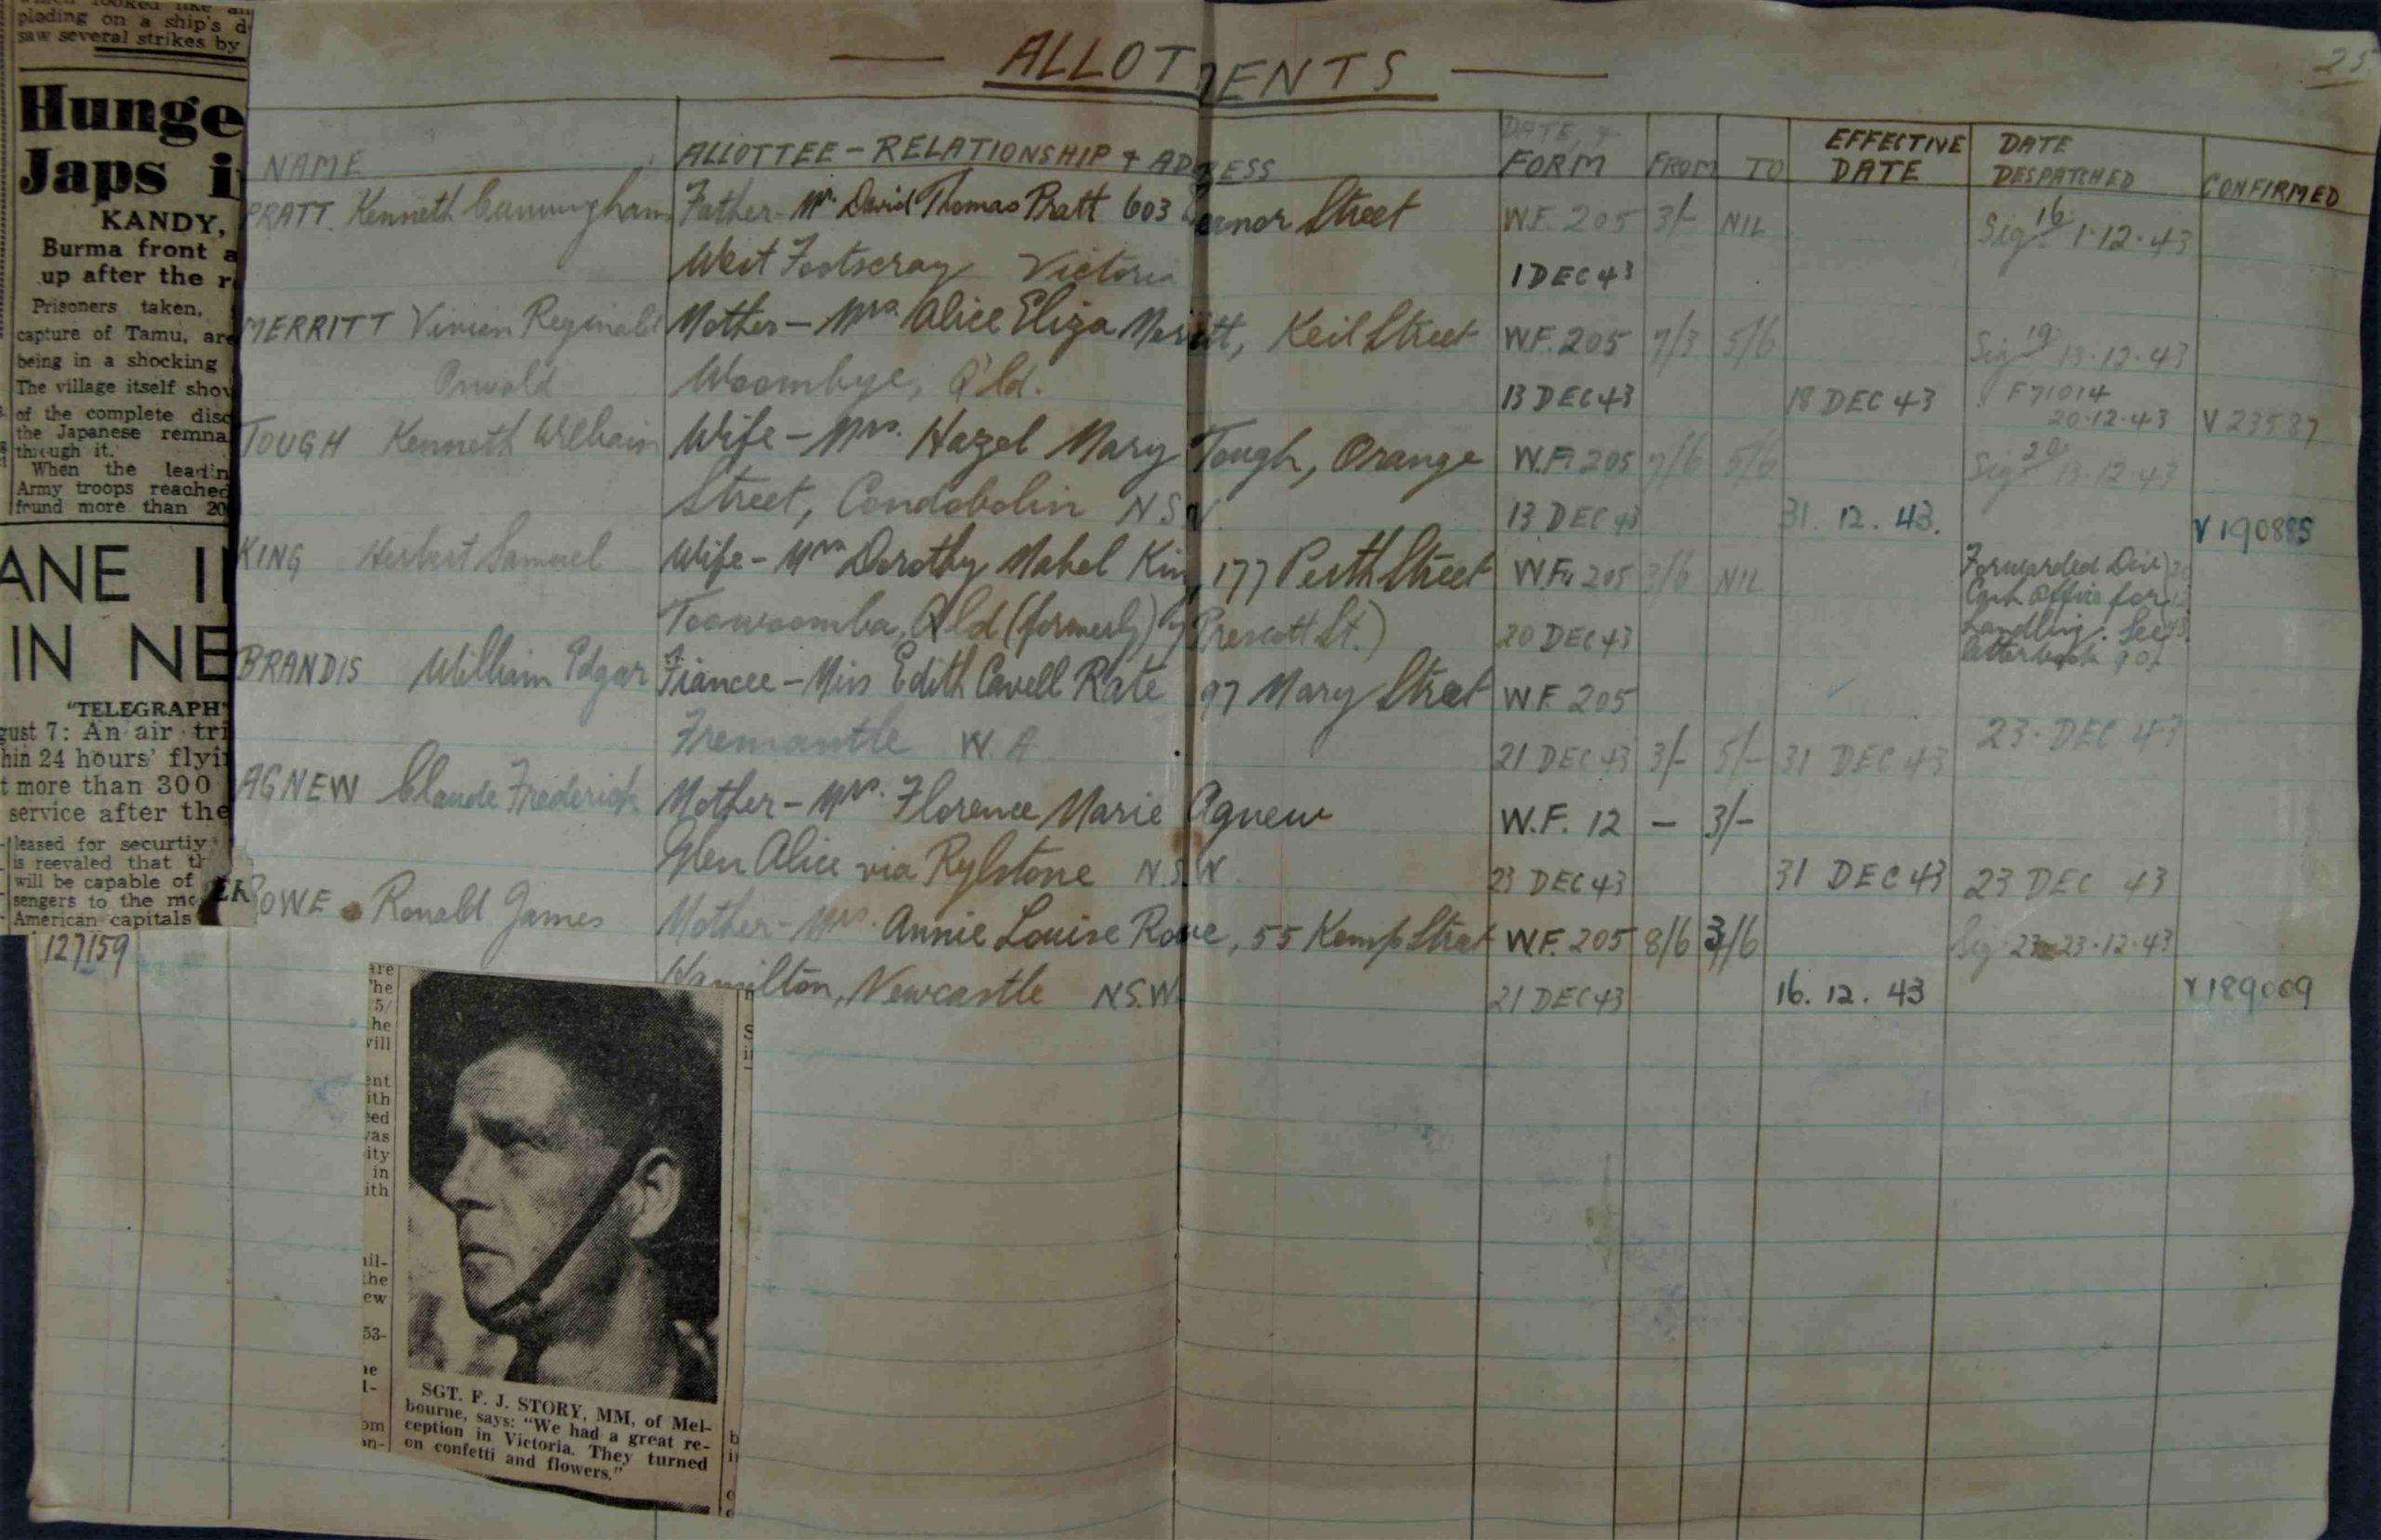 plading on a ship's d
saw several strikes by
Hunge
Japs i
KANDY,
Burma front a
up after the r
Prisoners taken,
capture of Tamu, are
being in a shocking
The village itself show
of the complete diso
the Japanese remna
through it.
When the leadin
Army troops reached
found more than 20
ANE I
IN NE
"TELEGRAPH"
gust 7: An air tri
hin 24 hours' flyi
t more than 300
service after the
leased for securtiy
is reevaled that th
will be capable of
sengers to the mo
American capitals
127159
25
— ALLOTMENTS —
NAME ALLOTTEE – RELATIONSHIP & ADDRESS DATE & FORM FROM TO EFFECTIVE DATE DATE DESPATCHED CONFIRMED
PRATT. Kenneth Cunningham Father – Mr. David Thomas Pratt 603 Street W.F. 205 3/- NIL Sig 16 1.12.43
West Footscray Victoria 1 DEC 43
MERRITT Vivian Reginald Mother – Mrs. Alice Eliza Merritt, Keil Street W.F. 205 7/3 5/6 Sig 19 13.12.43
Oswald Woombye, Q'ld. 13 DEC 43 18 DEC 43 F71014 20.12.43 V 23587
TOUGH Kenneth William Wife – Mrs. Hazel Mary Tough, Orange W.F. 205 7/6 5/6 Sig 20 13.12.43
Street, Condobolin N.S.W. 13 DEC 43 31. 12. 43. V 190885
KING Herbert Samuel Wife – Mrs Dorothy Mabel King, 177 Perth Street W.F. 205 3/6 NIL Forwarded Div Cash Office for
Toowoomba, Qld (formerly) Prescott St.) 20 DEC 43 handling. See
BRANDIS William Edgar Fiancee – Miss Edith Cavell Rate 97 Mary Street W.F. 205
Fremantle W.A 21 DEC 43 3/- 5/- 31 DEC 43 23. DEC 43
AGNEW Claude Frederick Mother – Mrs. Florence Marie Agnew W.F. 12 – 3/-
Glen Alice via Rylstone N.S.W. 23 DEC 43 31 DEC 43 23 DEC 43
ROWE Ronald James Mother – Mrs. Annie Louise Rowe, 55 Kemp Street W.F. 205 8/6 3/6 Sig 23 23.12.43
Hamilton, Newcastle N.S.W. 21 DEC 43 16. 12. 43 V 189009
SGT. F. J. STORY, MM, of Mel-
bourne, says: "We had a great re-
ception in Victoria. They turned
on confetti and flowers."